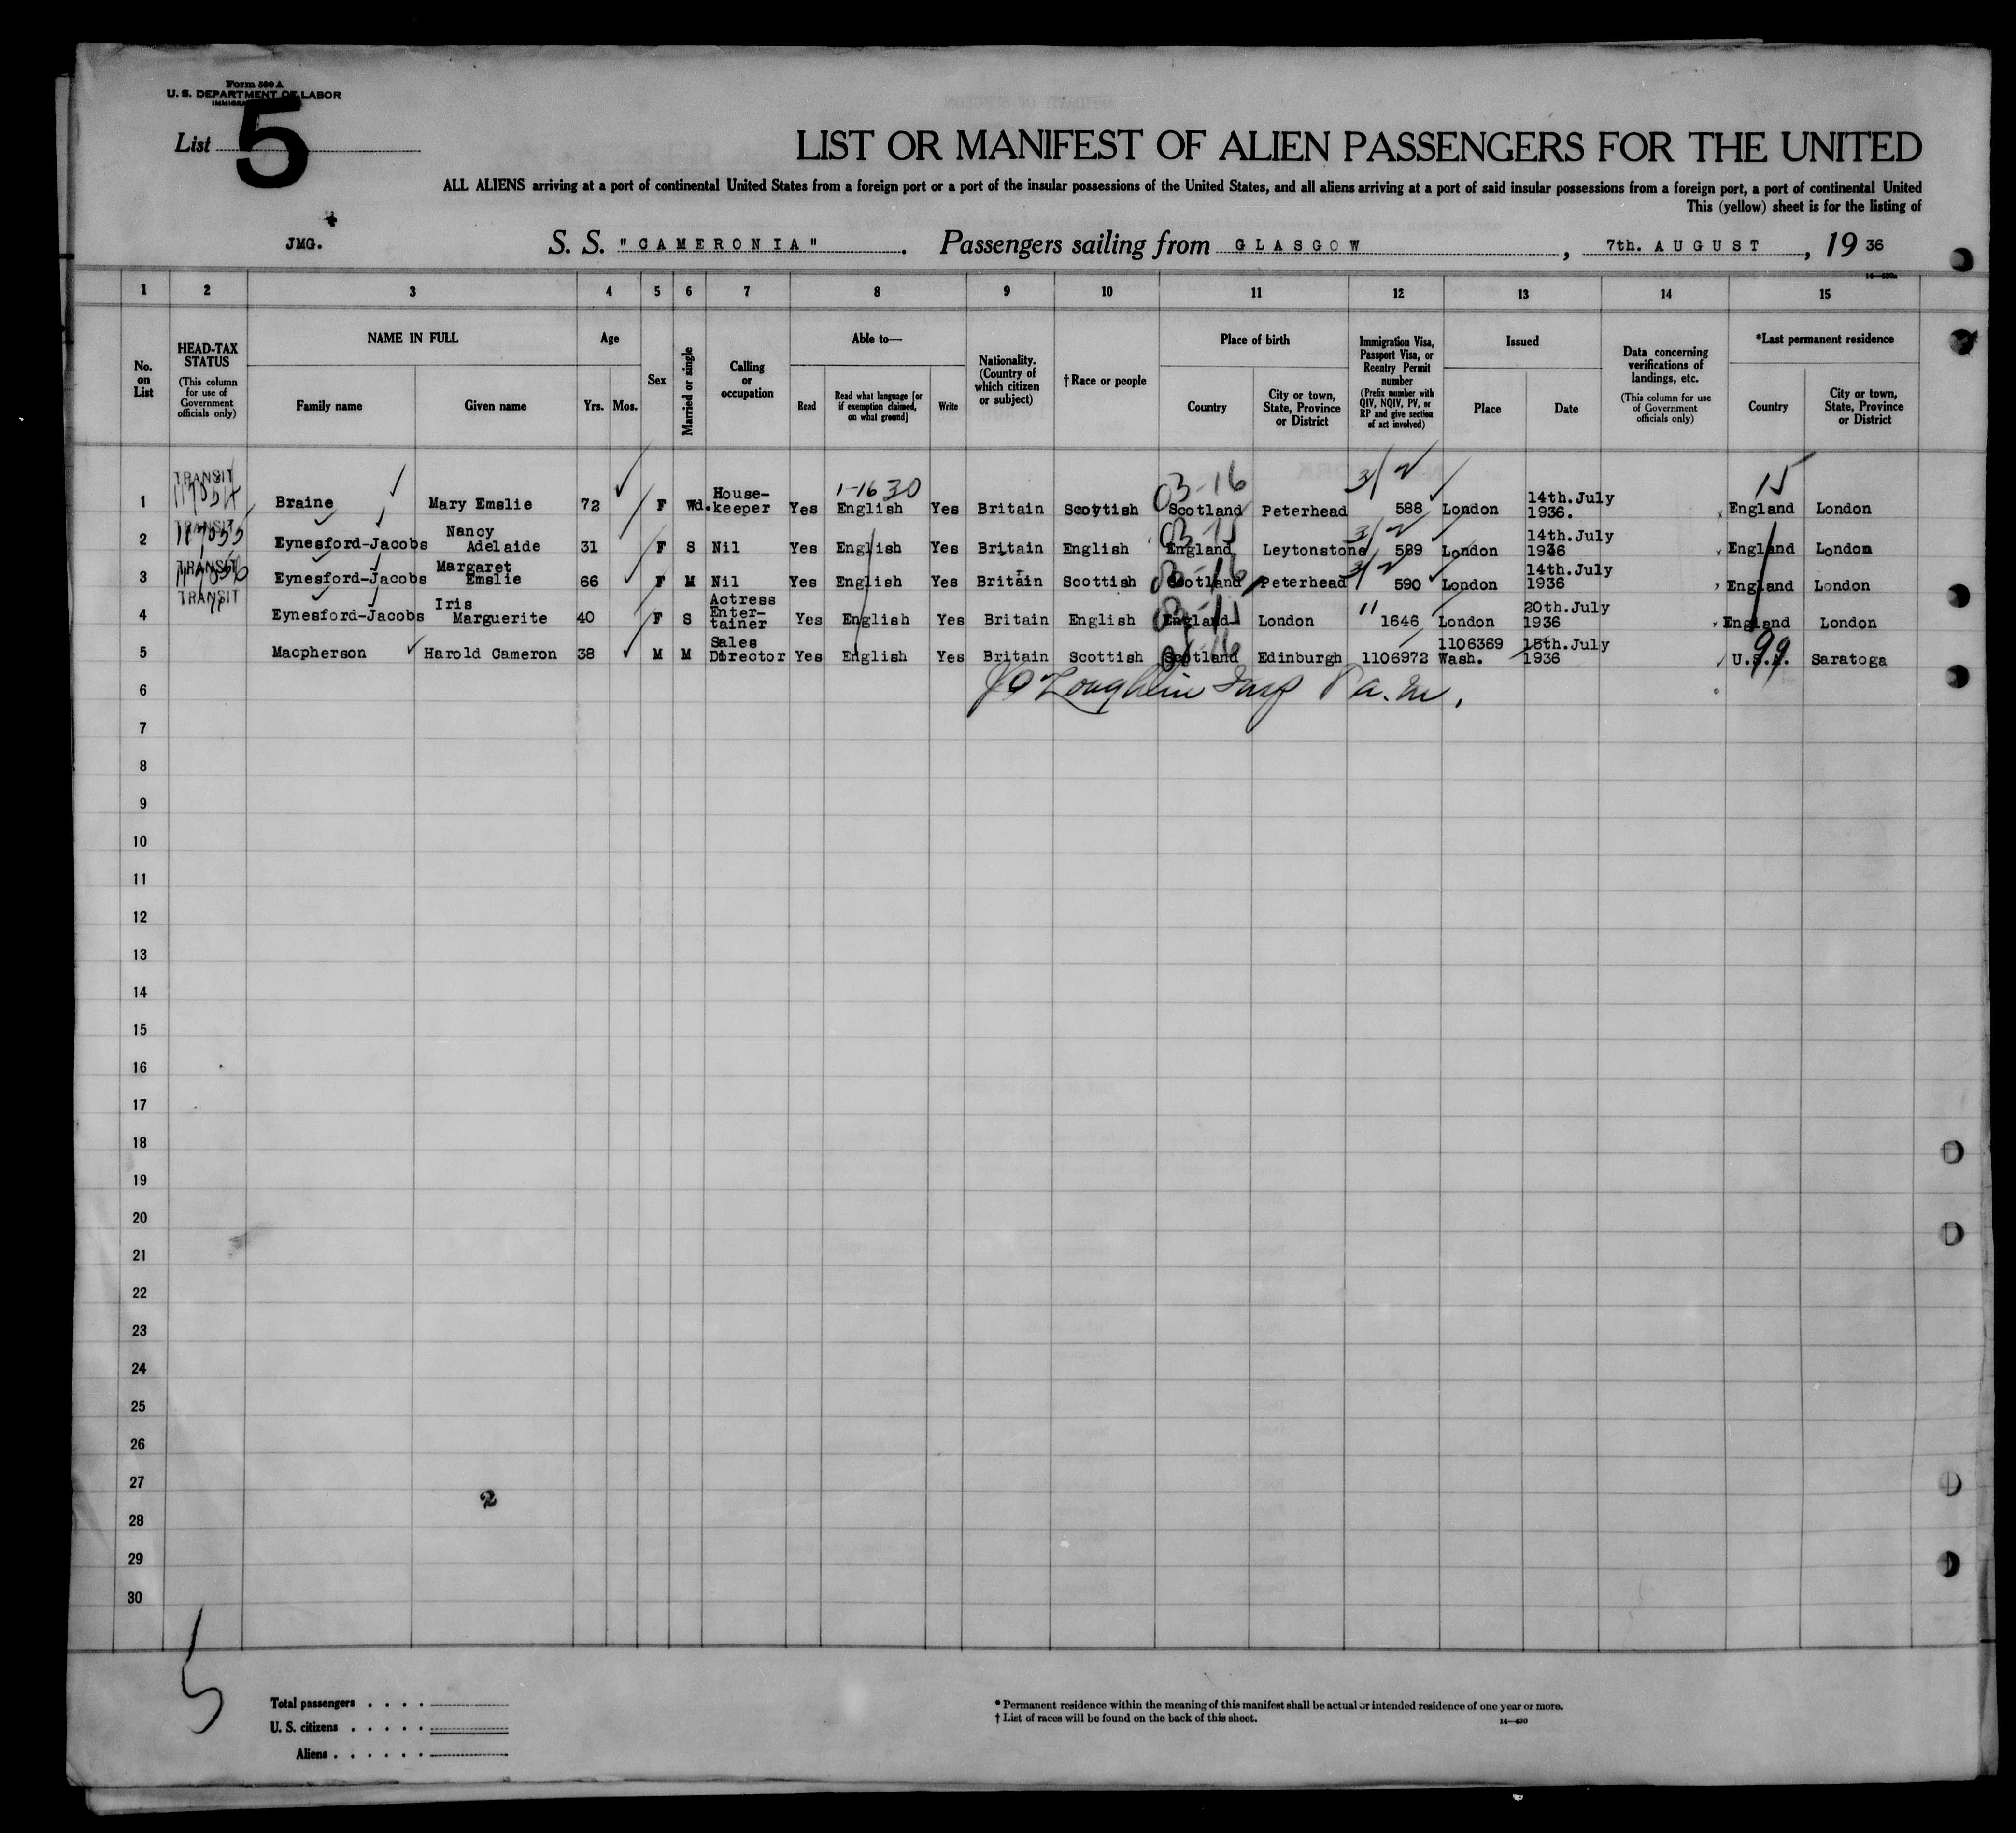 Form 500 A
U. S. DEPARTMENT OF LABOR
List 5
LIST OR MANIFEST OF ALIEN PASSENGERS FOR THE UNITED
ALL ALIENS arriving at a port of continental United States from a foreign port or a port of the insular possessions of the United States, and all aliens arriving at a port of said insular possessions from a foreign port, a port of continental United
This (yellow) sheet is for the listing of
JMG. S. S. "CAMERONIA". Passengers sailing from GLASGOW, 7th. AUGUST, 19 36
1 2 3 4 5 6 7 8 9 10 11 12 13 14 15
No. on List
HEAD-TAX STATUS (This column for use of Government officials only)
NAME IN FULL
Family name Given name
Age
Yrs. Mos.
Sex
Married or single
Calling or occupation
Able to—
Read Read what language [or if exemption claimed, on what ground] Write
Nationality. (Country of which citizen or subject)
†Race or people
Place of birth
Country City or town, State, Province or District
Immigration Visa, Passport Visa, or Reentry Permit number (Prefix number with QIV, NQIV, PV, or RP and give section of act involved)
Issued
Place Date
Data concerning verifications of landings, etc. (This column for use of Government officials only)
*Last permanent residence
Country City or town, State, Province or District
1-1630 03-16 3/2 15
1 TRANSIT Braine Mary Emslie 72 F Wd. House-keeper Yes English Yes Britain Scottish Scotland Peterhead 588 London 14th.July 1936. England London
2 TRANSIT Eynesford-Jacobs Nancy Adelaide 31 F S Nil Yes English Yes Britain English England Leytonstone 589 London 14th.July 1936 England London
3 TRANSIT Eynesford-Jacobs Margaret Emslie 66 F M Nil Yes English Yes Britain Scottish Scotland Peterhead 590 London 14th.July 1936 England London
4 TRANSIT Eynesford-Jacobs Iris Marguerite 40 F S Actress Enter-tainer Yes English Yes Britain English England London 1646 London 20th.July 1936 England London
5 Macpherson Harold Cameron 38 M M Sales Director Yes English Yes Britain Scottish Scotland Edinburgh 1106972 1106369 Wash. 15th.July 1936 U.S.A. 99 Saratoga
6
7
8
9
10
11
12
13
14
15
16
17
18
19
20
21
22
23
24
25
26
27
2
28
29
30
5
Total passengers
U. S. citizens
Aliens
* Permanent residence within the meaning of this manifest shall be actual or intended residence of one year or more.
† List of races will be found on the back of this sheet.
14—430